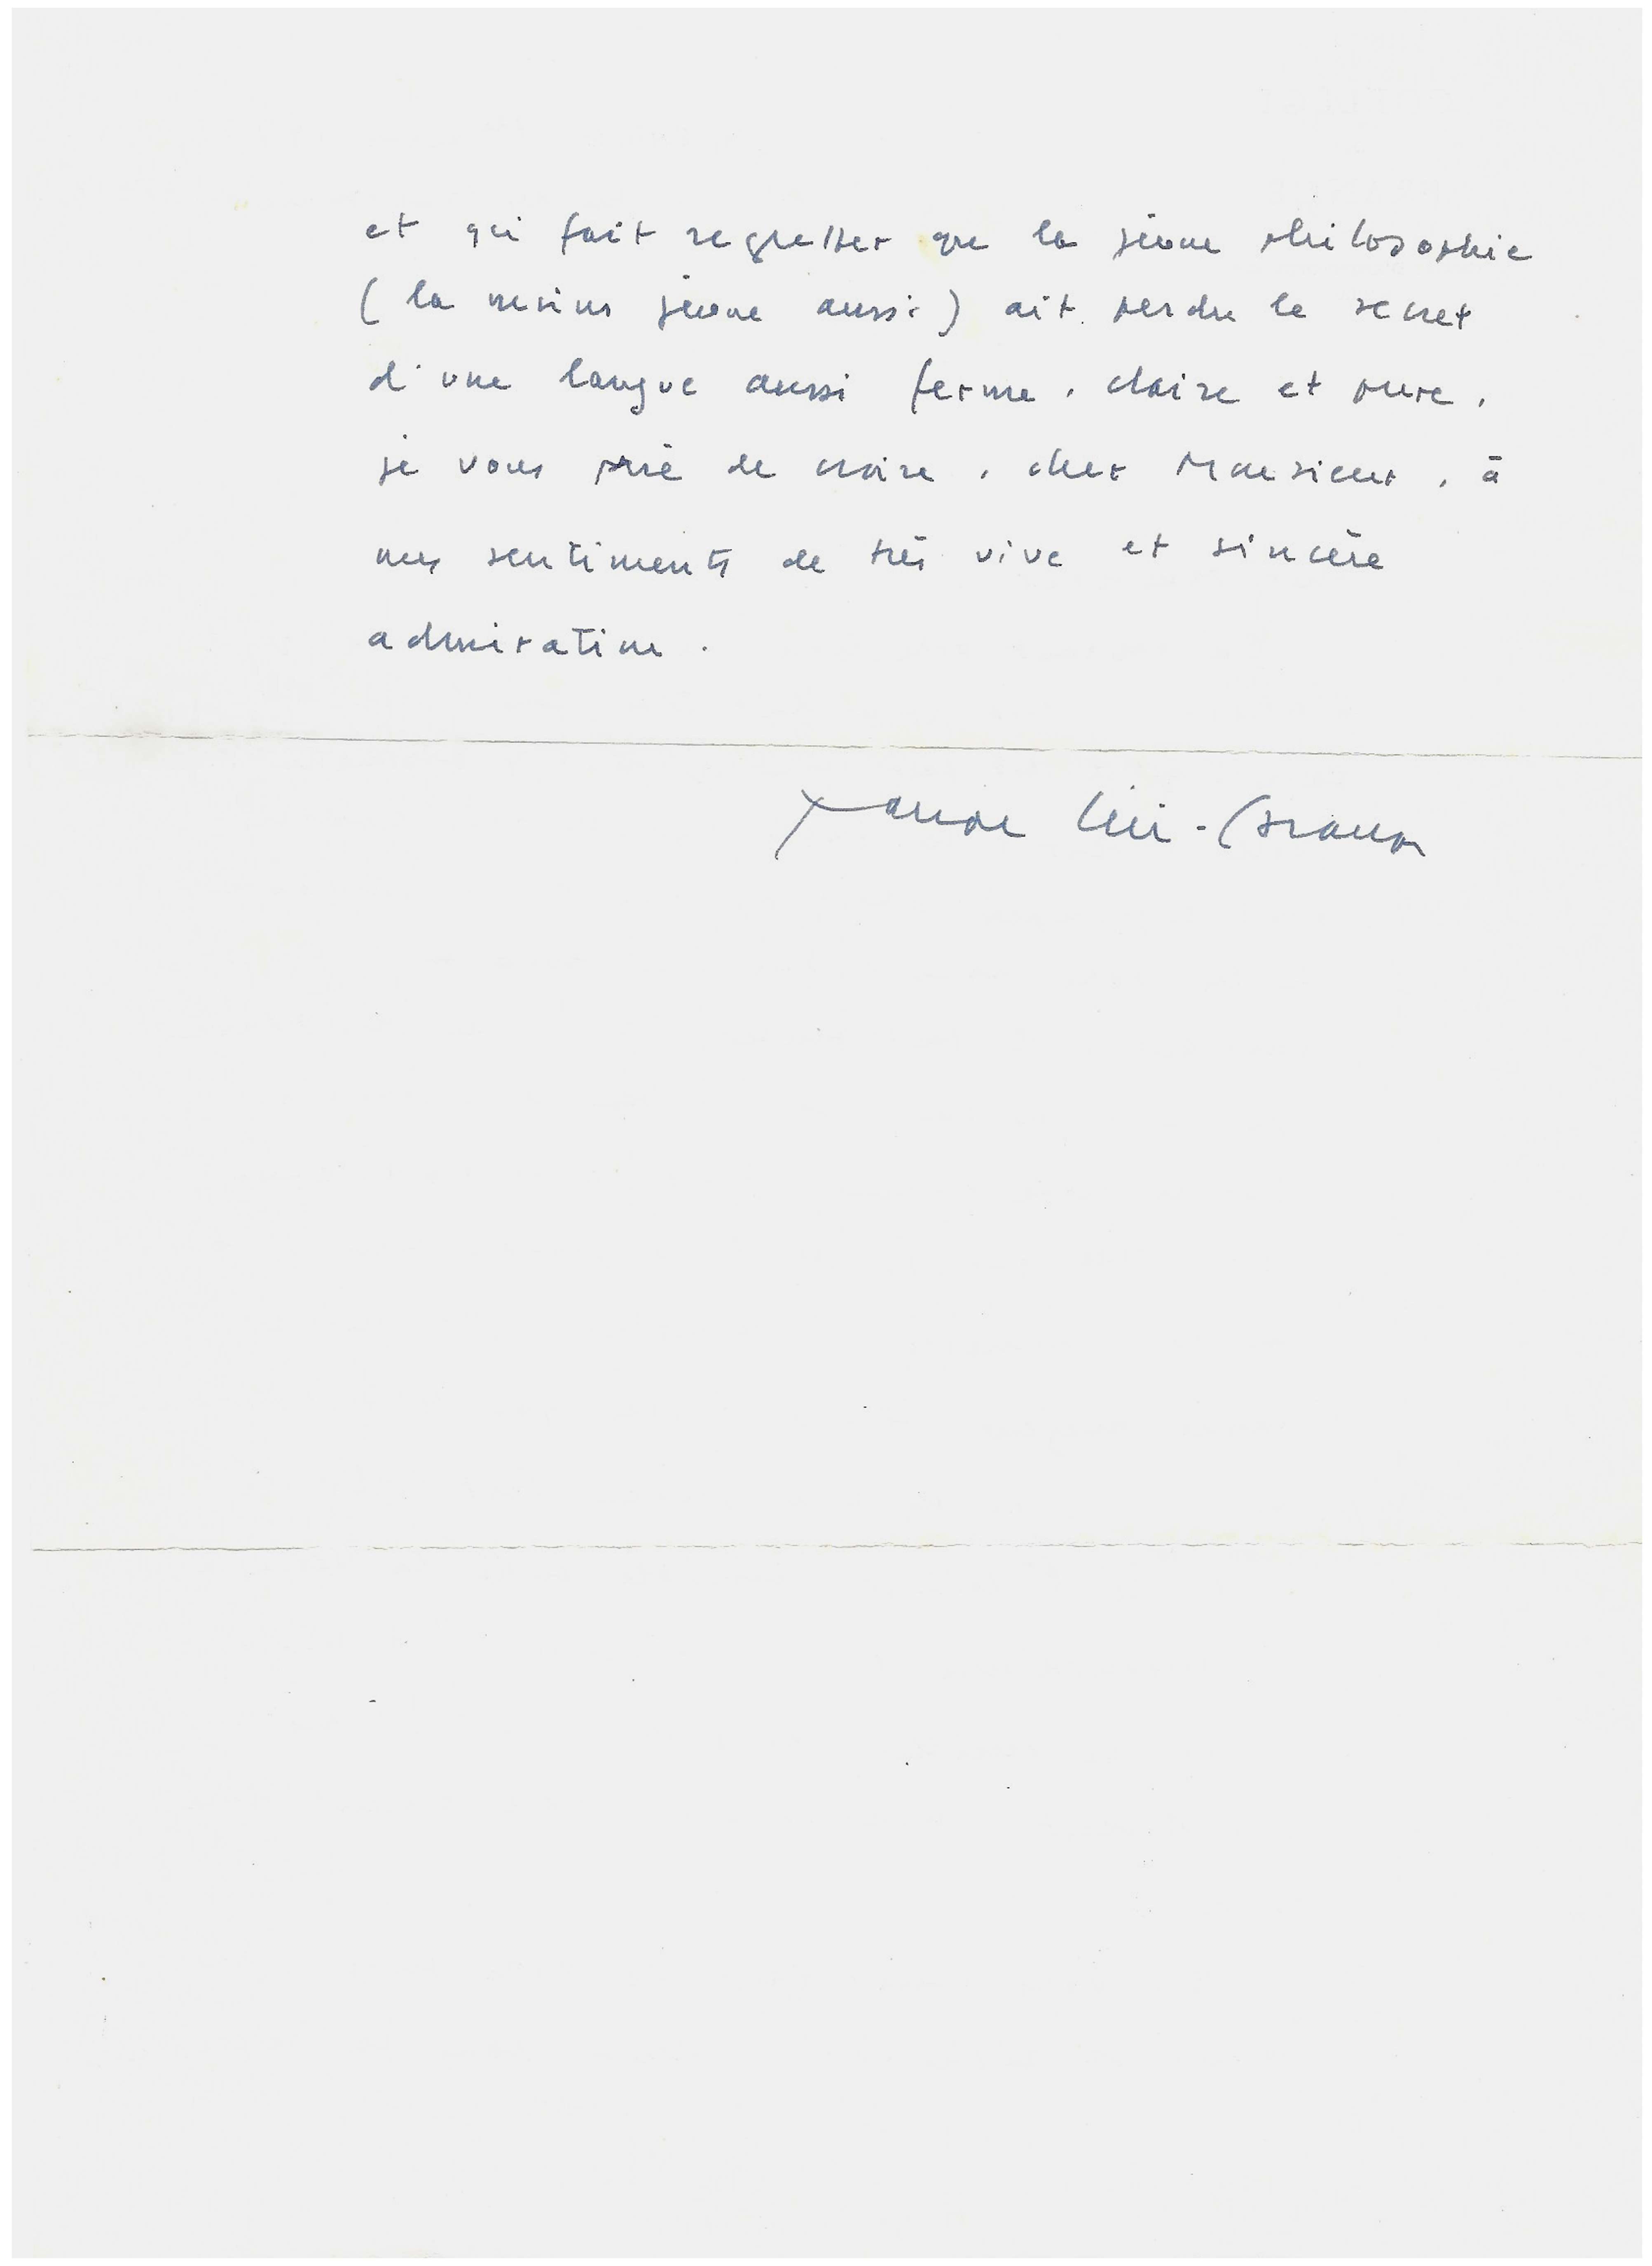 et qui fait regretter que la jeune philosophie
(la moins jeune aussi) ait perdu le secret
d'une langue aussi ferme, claire et pure,
je vous prie de croire, cher Monsieur, à
mes sentiments de très vive et sincère
admiration.
Claude Lévi-Strauss